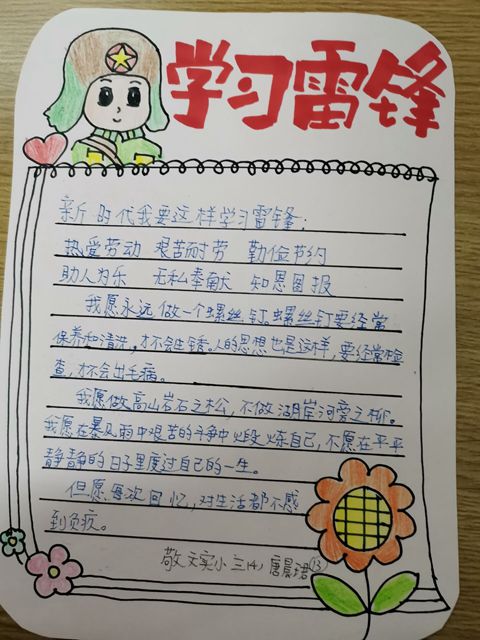 学习雷锋
新时代我要这样学习雷锋:
热爱劳动 艰苦耐劳 勤俭节约
助人为乐 无私奉献 知恩图报
我愿永远做一个螺丝钉。螺丝钉要经常
保养和清洗,才不会生锈。人的思想也是这样,要经常检
查,才不会出毛病。
我愿做高山岩石之松,不做湖岸河旁之柳。
我愿在暴风雨中艰苦的斗争中煅炼自己,不愿在平平
静静的日子里度过自己的一生。
但愿每次回忆,对生活都不感
到负疚。
敬文实小三(4) 唐晨珺 13